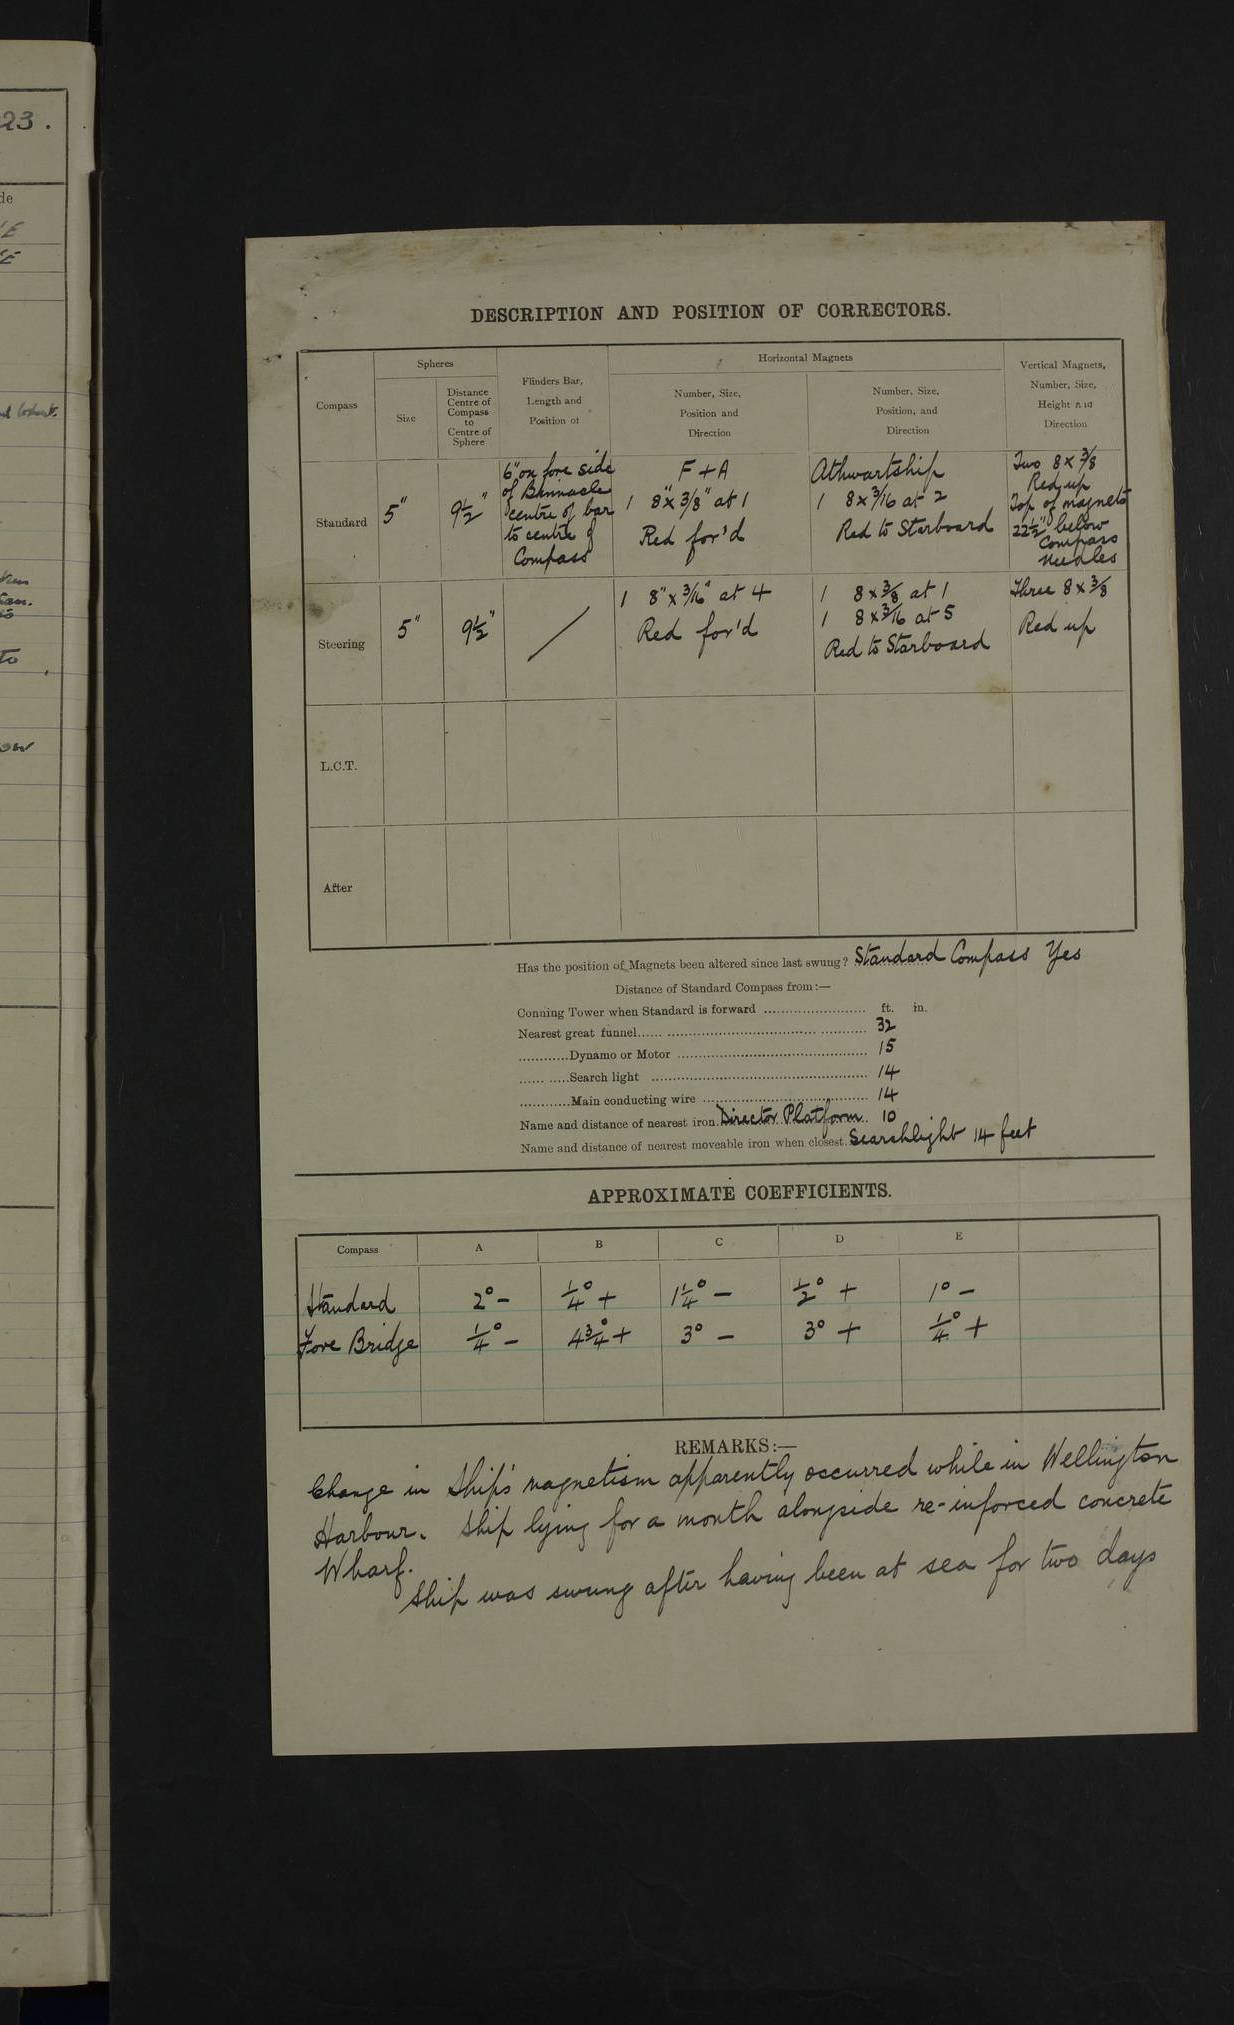 23.
de
E
E
DESCRIPTION AND POSITION OF CORRECTORS.
Compass
Spheres
Size
Distance Centre of Compass to Centre of Sphere
Flinders Bar, Length and Position of
Horizontal Magnets
Number, Size, Position and Direction
Number, Size, Position, and Direction
Vertical Magnets, Number, Size, Height and Direction
Standard
5"
9½"
6" on fore side
of Binnacle
centre of bar
to centre of
Compass
F + A
1 8" x 3/8" at 1
Red for'd
Athwartship
1 8 x 3/16 at 2
Red to Starboard
Two 8 x 3/8
Red up
Top of magnets
22½" below
Compass
Needles
Steering
5"
9½"
/
1 8" x 3/16" at 4
Red for'd
1 8 x 3/8 at 1
1 8 x 3/16 at 5
Red to Starboard
Three 8 x 3/8
Red up
L.C.T.
After
Has the position of Magnets been altered since last swung? Standard Compass Yes
Distance of Standard Compass from:—
Conning Tower when Standard is forward ........................ ft. in.
Nearest great funnel...... .................................... ........... 32
............Dynamo or Motor ............................................... 15
...... .....Search light ..................................................... 14
............Main conducting wire ........................................ 14
Name and distance of nearest iron. Director Platform 10
Name and distance of nearest moveable iron when closest. Searchlight 14 feet
APPROXIMATE COEFFICIENTS.
Compass A B C D E
Standard 2° - ¼° + 1¼° - ½° + 1° -
Fore Bridge ¼° - 4¾° + 3° - 3° + ¼° +
REMARKS:—
Change in Ship's magnetism apparently occurred while in Wellington
Harbour. Ship lying for a month alongside re-inforced concrete
Wharf.
Ship was swung after having been at sea for two days